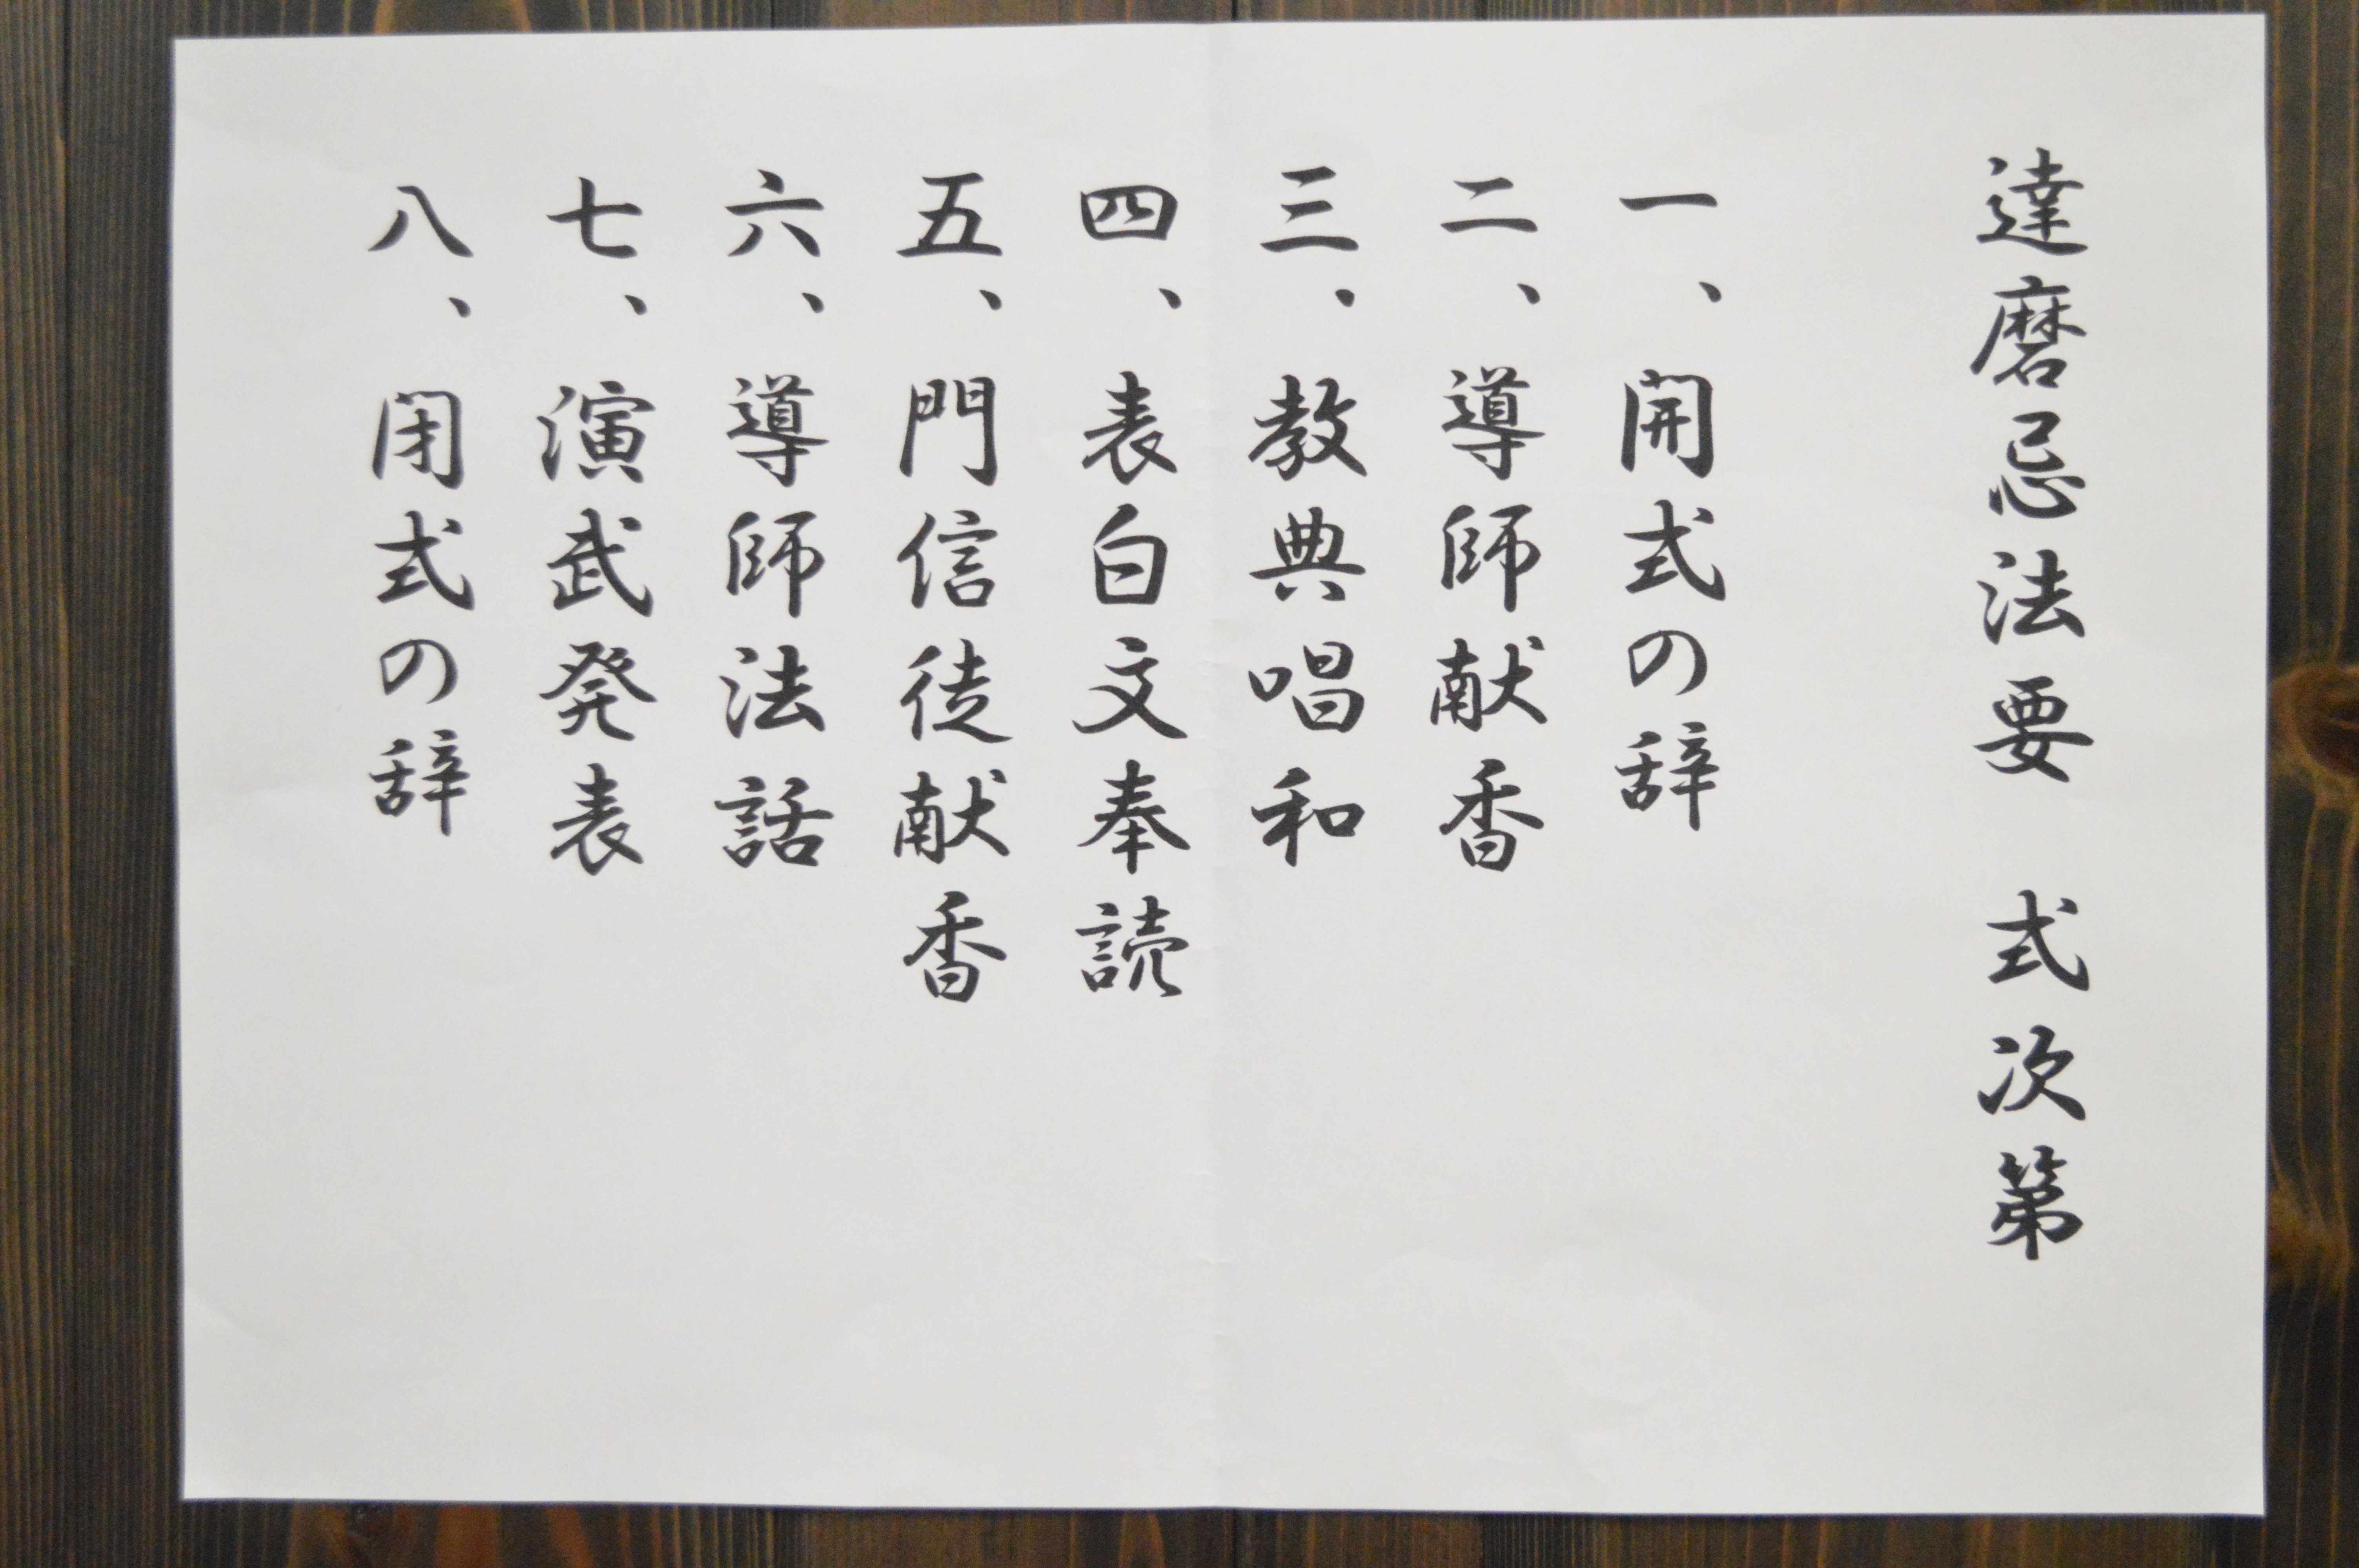 達磨忌法要　式次第
一、開式の辞
二、導師献香
三、教典唱和
四、表白文奉読
五、門信徒献香
六、導師法話
七、演武発表
八、閉式の辞